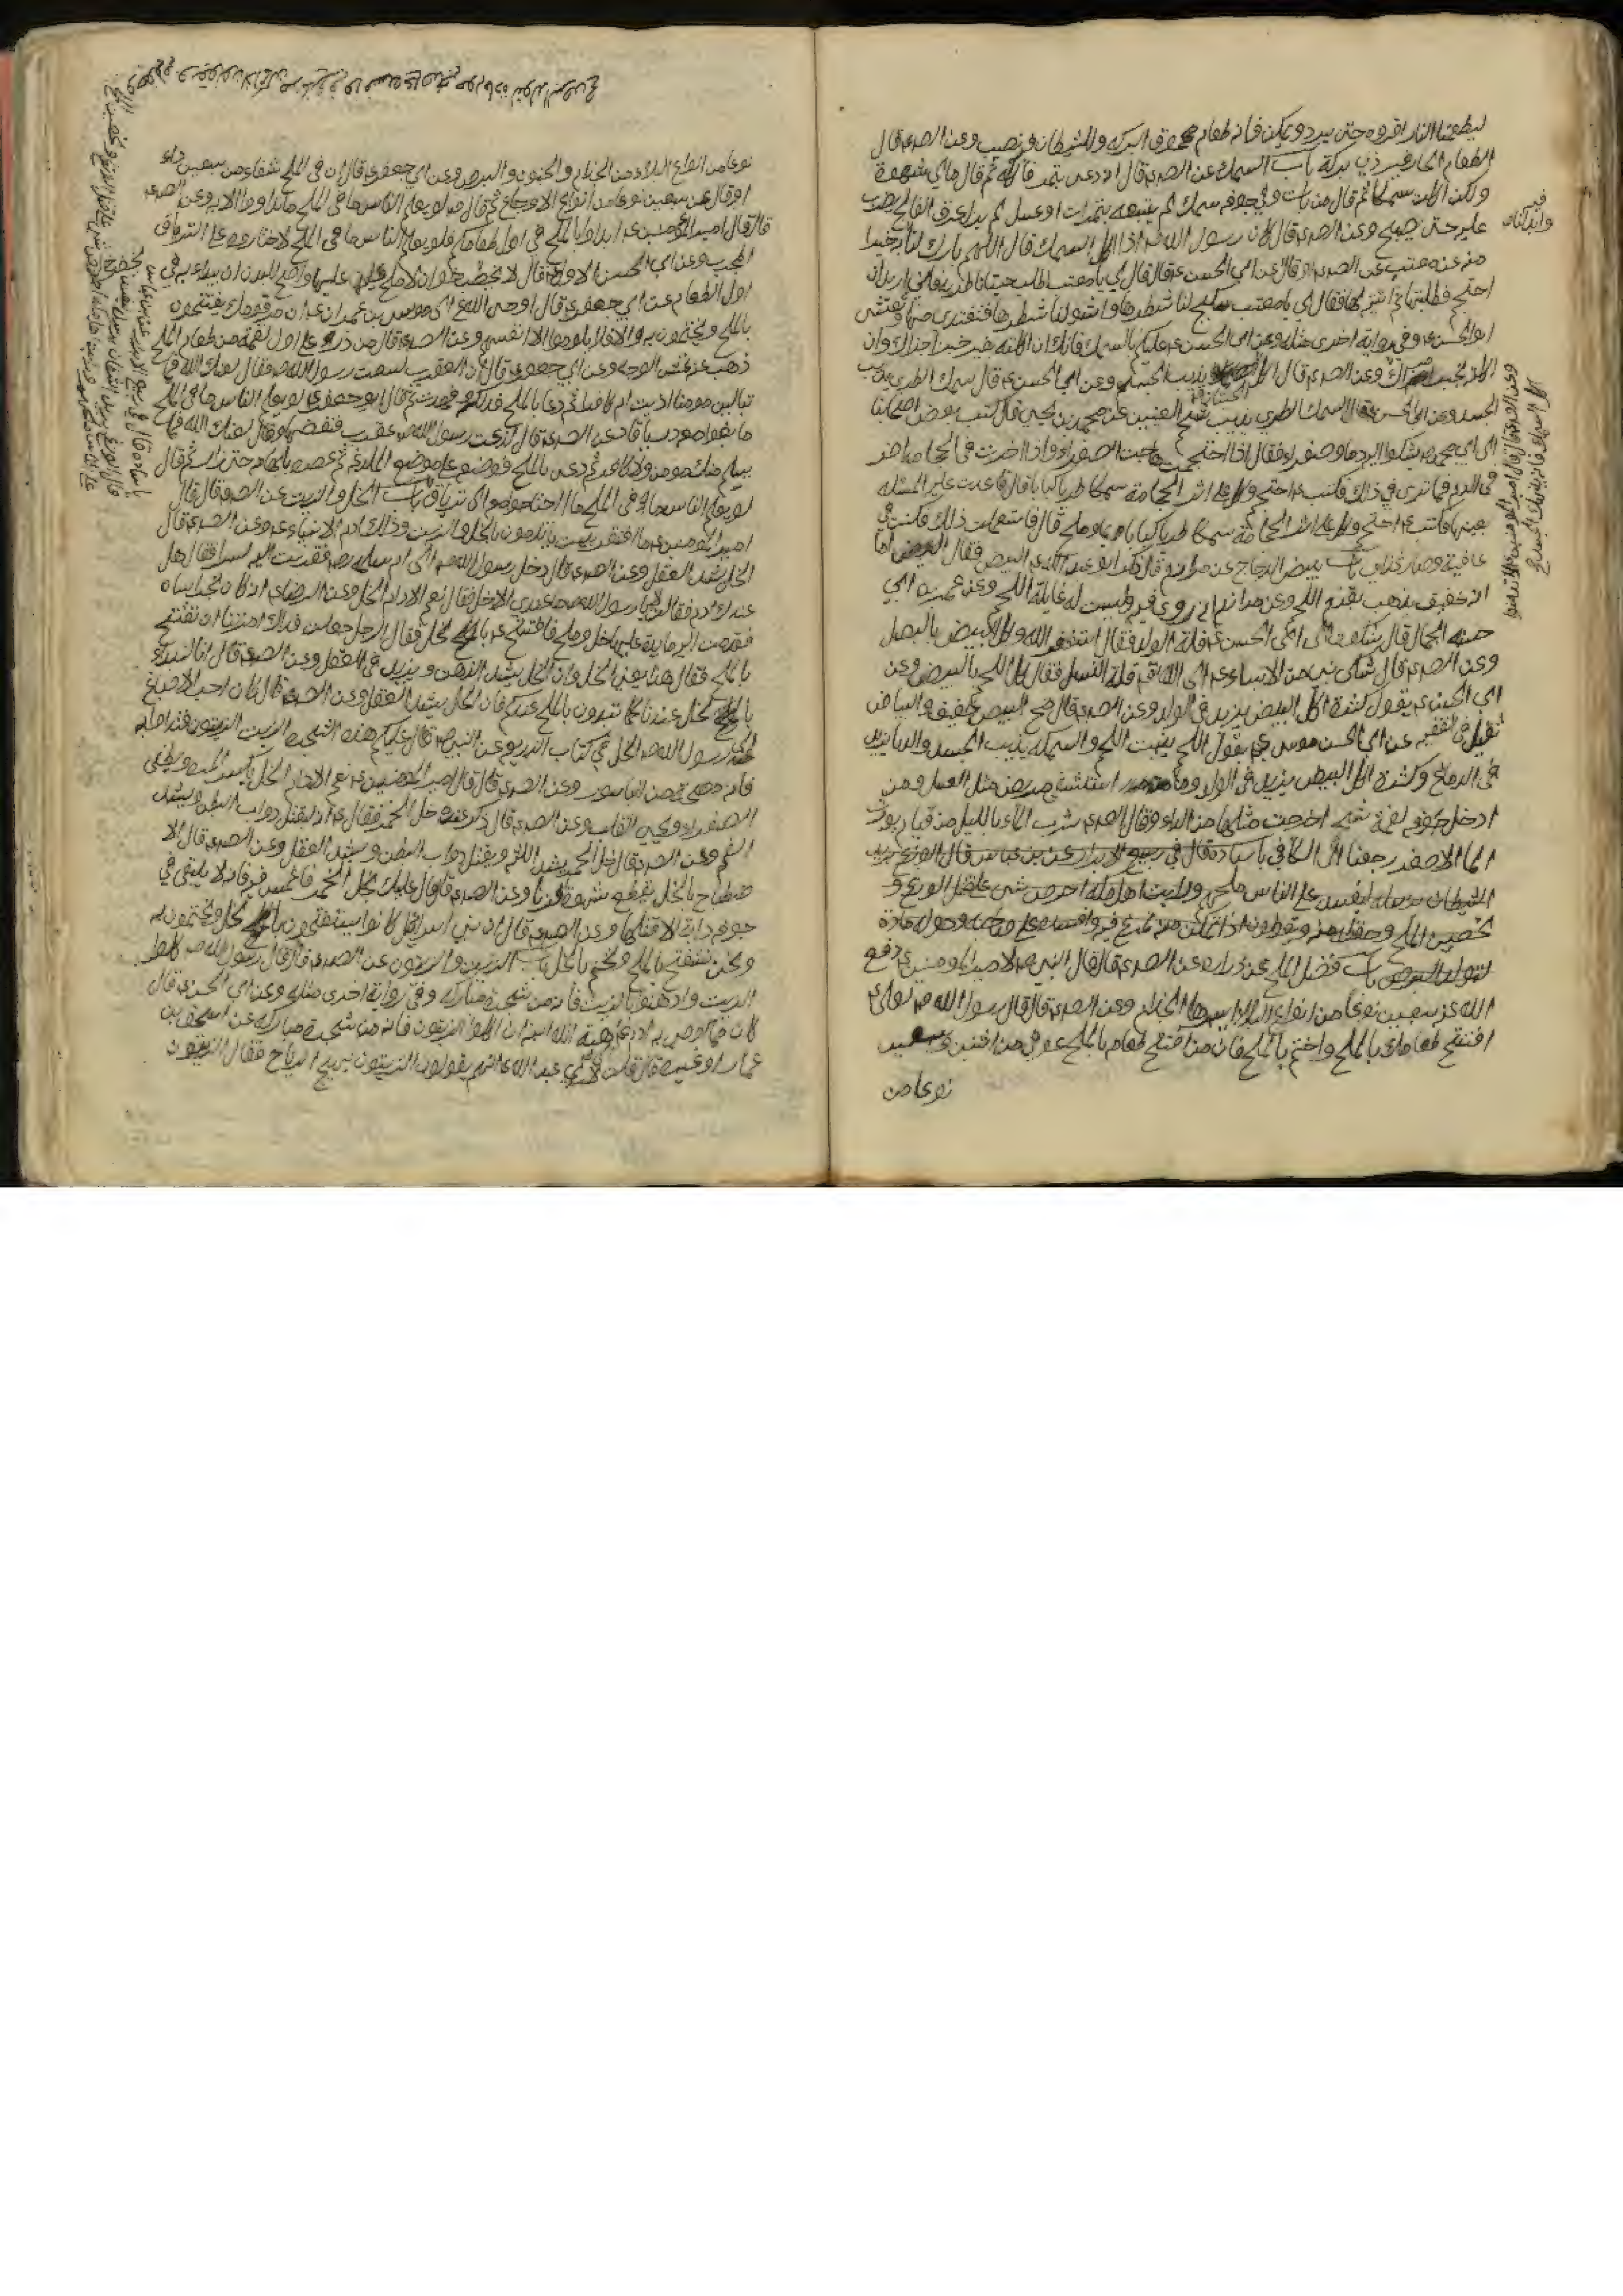 ليطعمنا النار اقروه حتى يبرد ويمكن فانه طعام ممحوق البركه وللشيطان فيه نصيب وعن الصدع قال
الطعام الحار غير ذي بركة باب السمك عن الصدع قال انه دعى بتمر فاكله ثم قال ما بي شهوة
ولكن اكلت سمكا ثم قال من بات وفي جوفه سمك لم يتبعه بتمرات او عسل لم يزل عرق الفالج يضرب
عليه حتى يصبح وعن الصدع قال كان رسول الله ص اذا اكل السمك قال اللهم بارك لنا فيه
وابدلنا به خيرا
منه عن معتب عن الصدع او قال عن ابي الحسن ع قال قال لي يا معتب اطلب لنا حيتانا طرية فاني اريد ان
احتجم فطلبتها ثم اتيته بها فقال لي يا معتب سكبج لنا شطرها واشو لنا شطرها فتغدى منها وتعشى
ابو الحسن ع وفي رواية اخرى مثله وعن ابي الحسن ع عليكم بالسمك فانك ان اكلته بغير خبز اجزاك وان
اكلته بخبز امراك وعن الصدع قال اكل الحيتان يذيب الجسد وعن ابي الحسن ع قال سمك الطري يذيب
الجسد وعن ابي الحسن ع قال السمك الطري يذيب شحم العينين عن محمد بن يحيى قال كتب بعض اصحابنا
الى ابي محمد ع يشكو اليه دما وصفراء فقال اذا احتجمت هاجت الصفراء واذا اخرت الحجامة اضر
في الدم فما ترى في ذلك فكتب ع احتجم وكل على اثر الحجامة سمكا طريا كبابا قال فاعدت عليه المسئله
بعينها فكتب ع احتجم وكل على اثر الحجامة سمكا طريا كبابا بماء وملح قال فاستعملت ذلك فكنت في
عافية وصار غذاي باب بيض الدجاج عن مرازم قال ذكر ابو عبد الله ع البيض فقال اما
انه خفيف يذهب بقرم اللحم وعن مرازم انه روى فيه وليست له غايلة اللحم وعن عمر بن ابي
حسنه الجمال قال شكوت الى ابي الحسن ع قلة الولد فقال استغفر الله وكل البيض بالبصل
وعن الصدع قال شكى نبي من الانبياء ع الى الله تع قلة النسل فقال كل اللحم بالبيض وعن
ابي الحسن ع يقول كثرة اكل البيض يزيد في الولد وعن الصدع قال مح البيض خفيف والبياض
ثقيل في الفقيه عن ابي الحسن موسى ع يقول اللحم ينبت اللحم والسمكه يذيب الجسد والدبا يزيد
في الدماغ وكثرة اكل البيض يزيد في الولد وما استشفى مريض مثل العسل ومن
ادخل جوفه لقمة شحم اخرجت مثلها من الداء وقال الصدع شرب الماء بالليل من قيام يورث
الما الاصفر رجعنا الى الكافي
باب فضل الملح عن زراره عن الصدع قال قال النبي ص لامير المومنين ع دفع
الله عن سبعين نوعا من انواع البلاء ايسرها الجذام وعن الصدع قال قال رسول الله ص لعلي ع
افتتح طعامك بالملح واختم بالملح فان من افتتح طعامه بالملح عوفي من اثنين وسبعين
نوعا من
نوعا من انواع البلاء من الجذام والجنون والبرص وعن ابي جعفر ع قال ان في الملح شفاء من سبعين داء
او قال من سبعين نوعا من انواع الاوجاع ثم قال ص لو يعلم الناس ما في الملح ما تداووا الا به وعن الصدع
قال قال امير المومنين ع ابداوا بالملح في اول طعامكم فلو يعلم الناس ما في الملح لاختاروه على الترياق
المجرب وعن ابي الحسن الاول ع قال لا يخصب خوان لا ملح عليها واصح للبدن ان يبداء به في
اول الطعام عن ابي جعفر ع قال اوحى الله الى موسى بن عمران ع ان مر قومك يفتتحون
بالملح ويختمون به والا فلا يلوموا الا انفسهم وعن الصدع قال من ذر على اول لقمة من طعامه الملح
ذهب عنه نمش الوجه وعن ابي جعفر ع قال ان العقرب لسعت رسول الله ص فقال لعنك الله فما
تبالين مومنا اذيت ام كافرا ثم دعا بالملح فدلكه فهدت ثم قال ابو جعفر ع لو يعلم الناس ما في الملح
ما بغوا معه درياقا وعن الصدع قال لدغت رسول الله ص عقرب فنفضها وقال لعنك الله فما
يسلم منك مومن ولا كافر ثم دعى بالملح فوضعه على موضع اللدغه ثم عصره بابهامه حتى ذاب ثم قال
لو يعلم الناس ما في الملح ما احتاجوا معه الى ترياق باب الخل والزيت عن الصدع قال قال
امير المومنين ع ما افتقر بيت ياتدمون بالخل والزيت وذلك ادم الانبياء ع وعن الصدع قال
الخل يشد العقل وعن الصدع قال دخل رسول الله ص الى ام سلمه رض فقربت اليه كسرا فقال هل
عندك ادم فقالت لا يا رسول الله ما عندي الا خل فقال نعم الادام الخل وعن الرضا ع
فقدمت اليه مايدة عليها خل وملح فافتتح ع بالخل فقال الرجل جعلت فداك امرتنا ان نفتتح
بالملح فقال هذا يعني الخل وان الخل يشد الذهن ويزيد في العقل وعن الصدع قال انا لنبدء
بالخل عندنا كما تبدون بالملح عندكم فان الخل يشد العقل وعن الصدع قال كان احب الاصباغ
الى رسول الله ص الخل في كتاب عن النبي ص قال عليكم هذه الشجرة الزيت الزيتون فتداووا به
فانه مصحة من الباسور وعن الصدع قال قال امير المومنين ع نعم الادام الخل يكسر المرة ويطفي
الصفراء ويحيي القلب وعن الصدع قال ذكر عنده خل الخمر فقال ع انه ليقتل دواب البطن ويشد
الفم وعن الصدع قال خل الخمر يشد اللثة ويقتل دواب البطن ويشد العقل وعن الصدع قال الا
صطباغ بالخل يقطع شهوة الزنا وعن الصدع قال قال عليك بخل الخمر فاغمس فيه فانه لا يبقى في
جوفك دابة الا قتلها وعن الصدع قال ان بني اسرائيل كانوا يستفتحون بالخل ويختمون به
ونحن نستفتح بالملح ونختم بالخل باب الزيت والزيتون عن الصدع قال قال رسول الله ص كلوا
الزيت وادهنوا بالزيت فانه من شجرة مباركه وفي رواية اخرى مثله وعن ابي الحسن ع قال
كان مما اوصى به ادم ع هبة الله ابنه ان كل الزيتون فانه من شجرة مباركه عن اسحق بن
عمار او غيره قال قلت لابي عبد الله ع انهم يقولون الزيتون يهيج الرياح فقال الزيتون